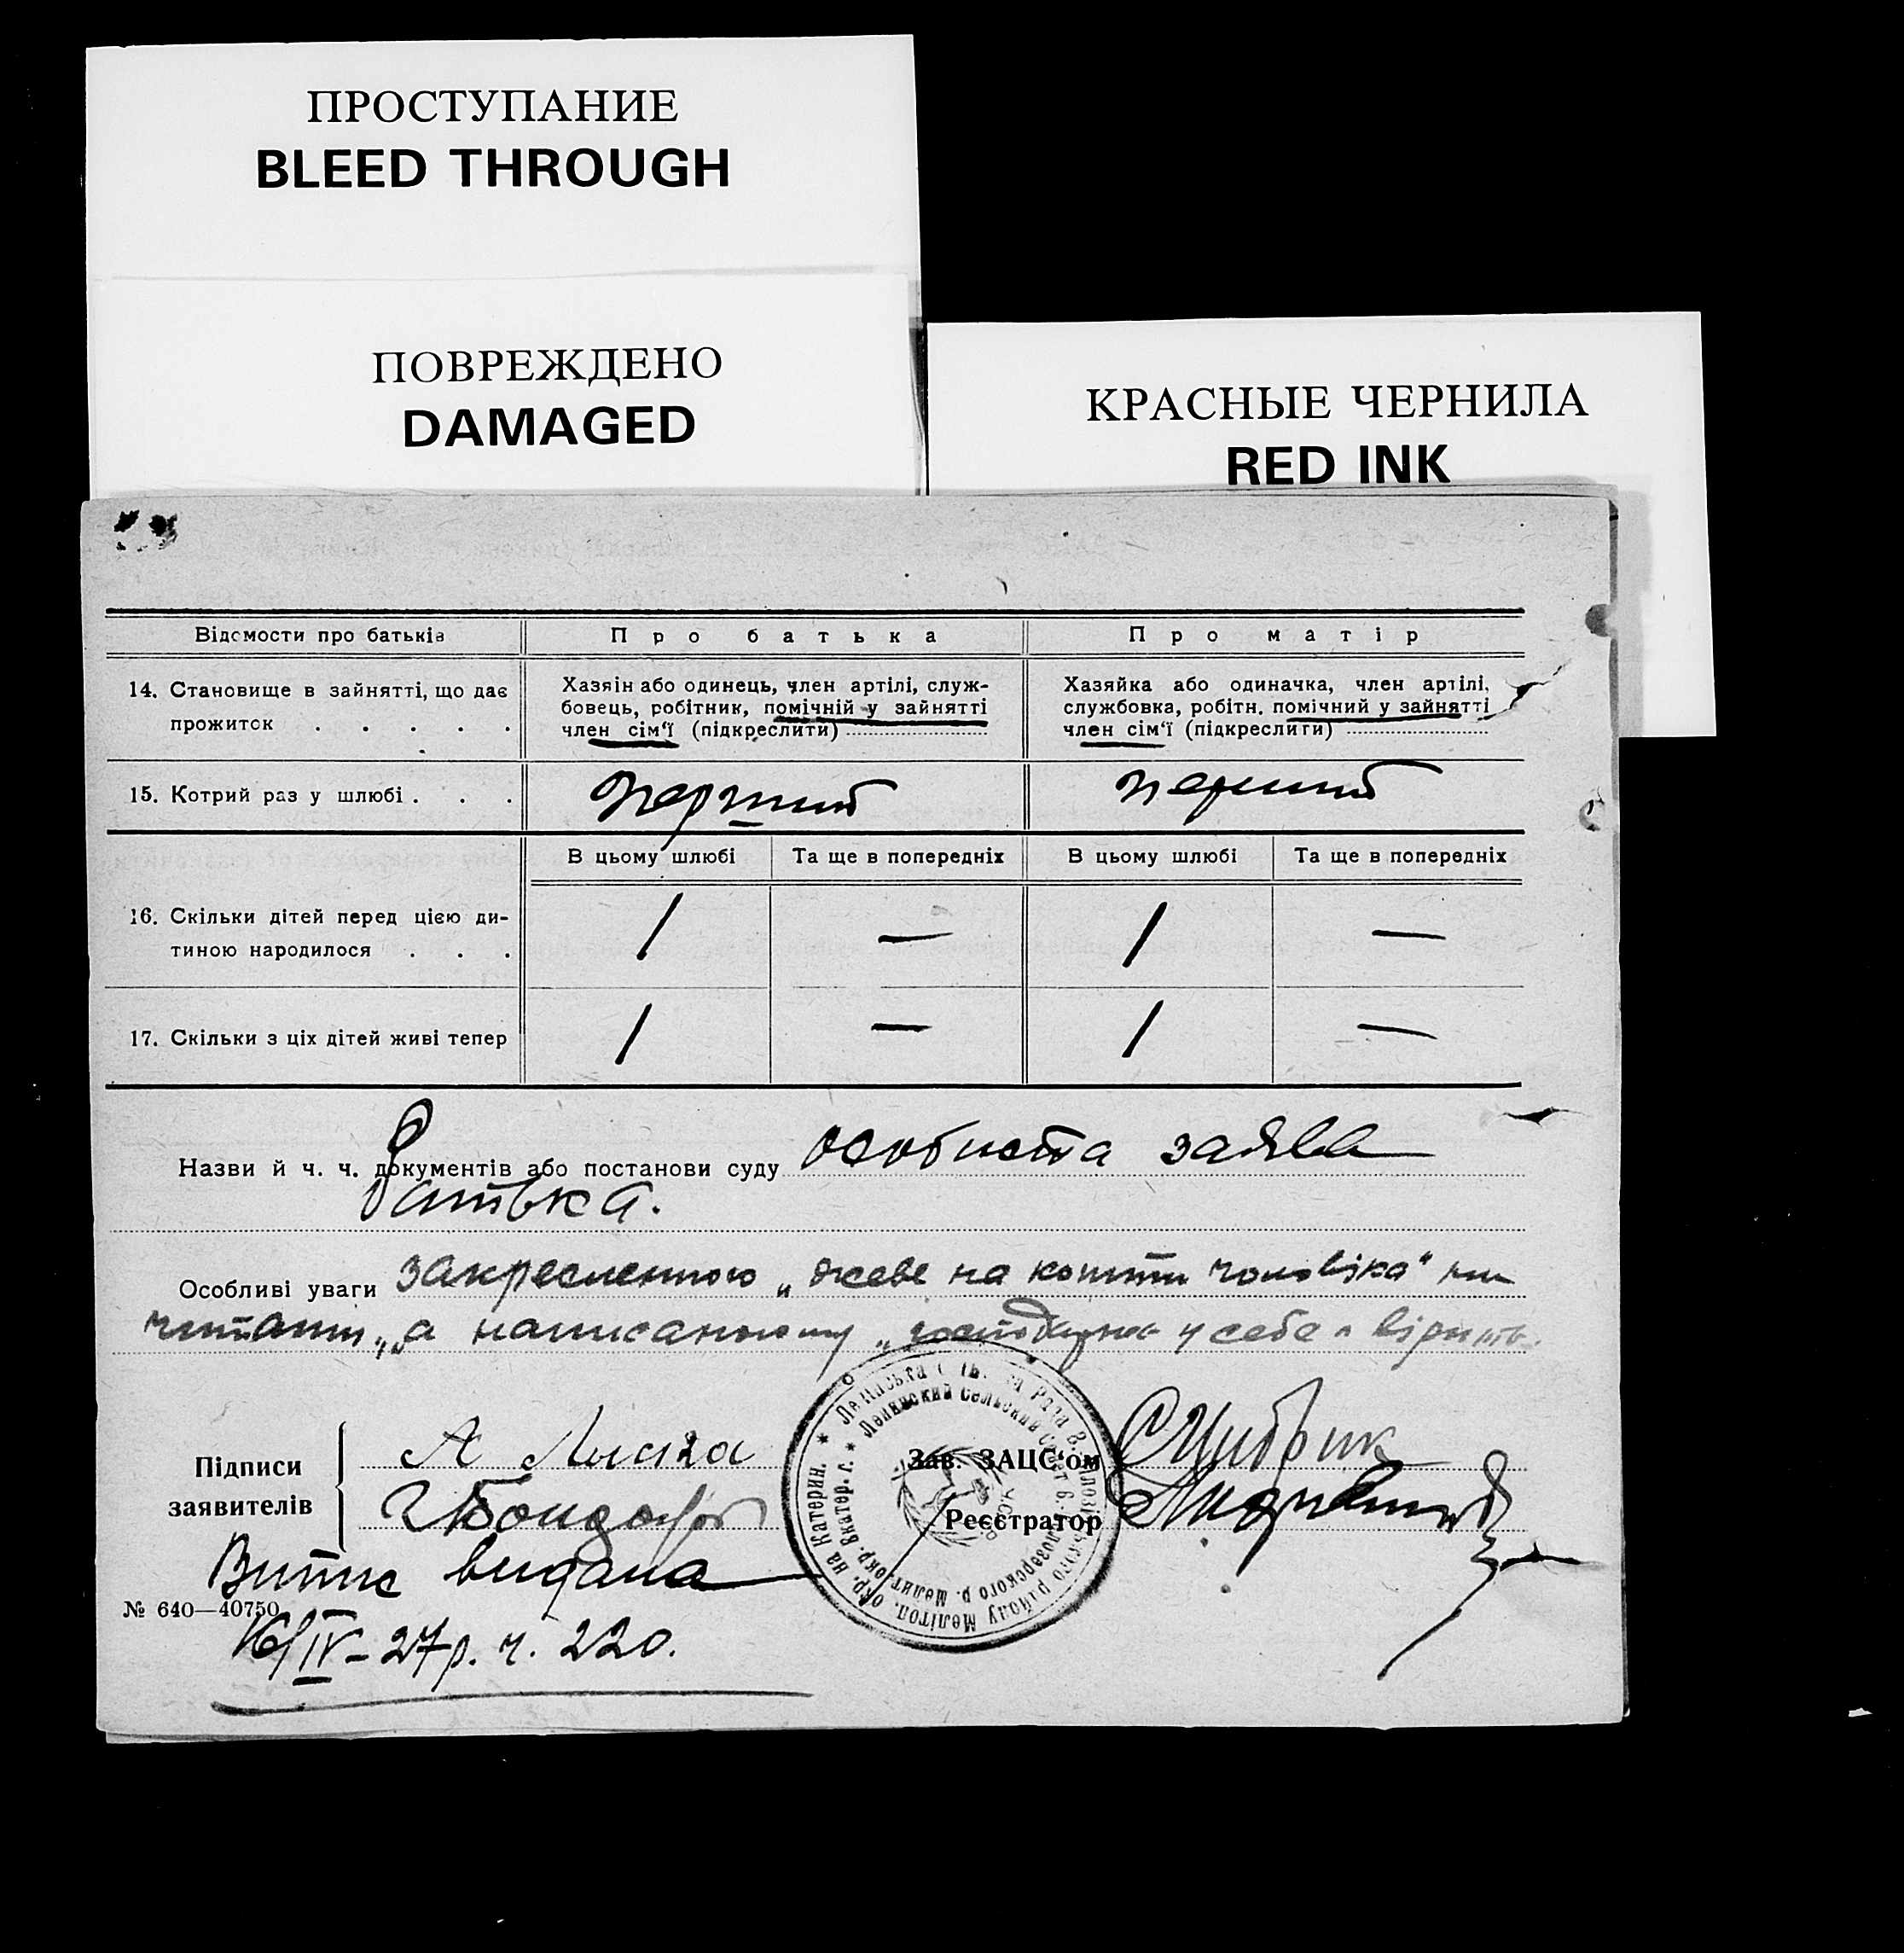 ПРОСТУПАНИЕ
BLEED THROUGH
ПОВРЕЖДЕНО
DAMAGED
КРАСНЫЕ ЧЕРНИЛА
RED INK
Відомости про батьків
Про батька
Про матір
14. Становище в зайнятті, що дає
прожиток . . . . .
Хазяїн або одинець, член артілі, служ-
бовець, робітник, помічній у зайнятті
член сім'ї (підкреслити)
Хазяйка або одиначка, член артілі,
службовка, робітн. помічний у зайнятті
член сім'ї (підкреслити)
15. Котрий раз у шлюбі . . .
перший
перший
В цьому шлюбі
Та ще в попередніх
В цьому шлюбі
Та ще в попередніх
16. Скільки дітей перед цією ди-
тиною народилося . . .
1 — 1 —
17. Скільки з ціх дітей живі тепер
1 — 1 —
Назви й ч. ч. документів або постанови суду особиста заява
батька.
Особливі уваги закресленного „живе на кошти чоловіка“ не
читати, а написанному у себе вірить.
Підписи
заявителів
А
Бондар
Зав. ЗАЦС'ом
Реєстратор
Витис видана
№ 640—40750
16/IV-27р. ч. 220.